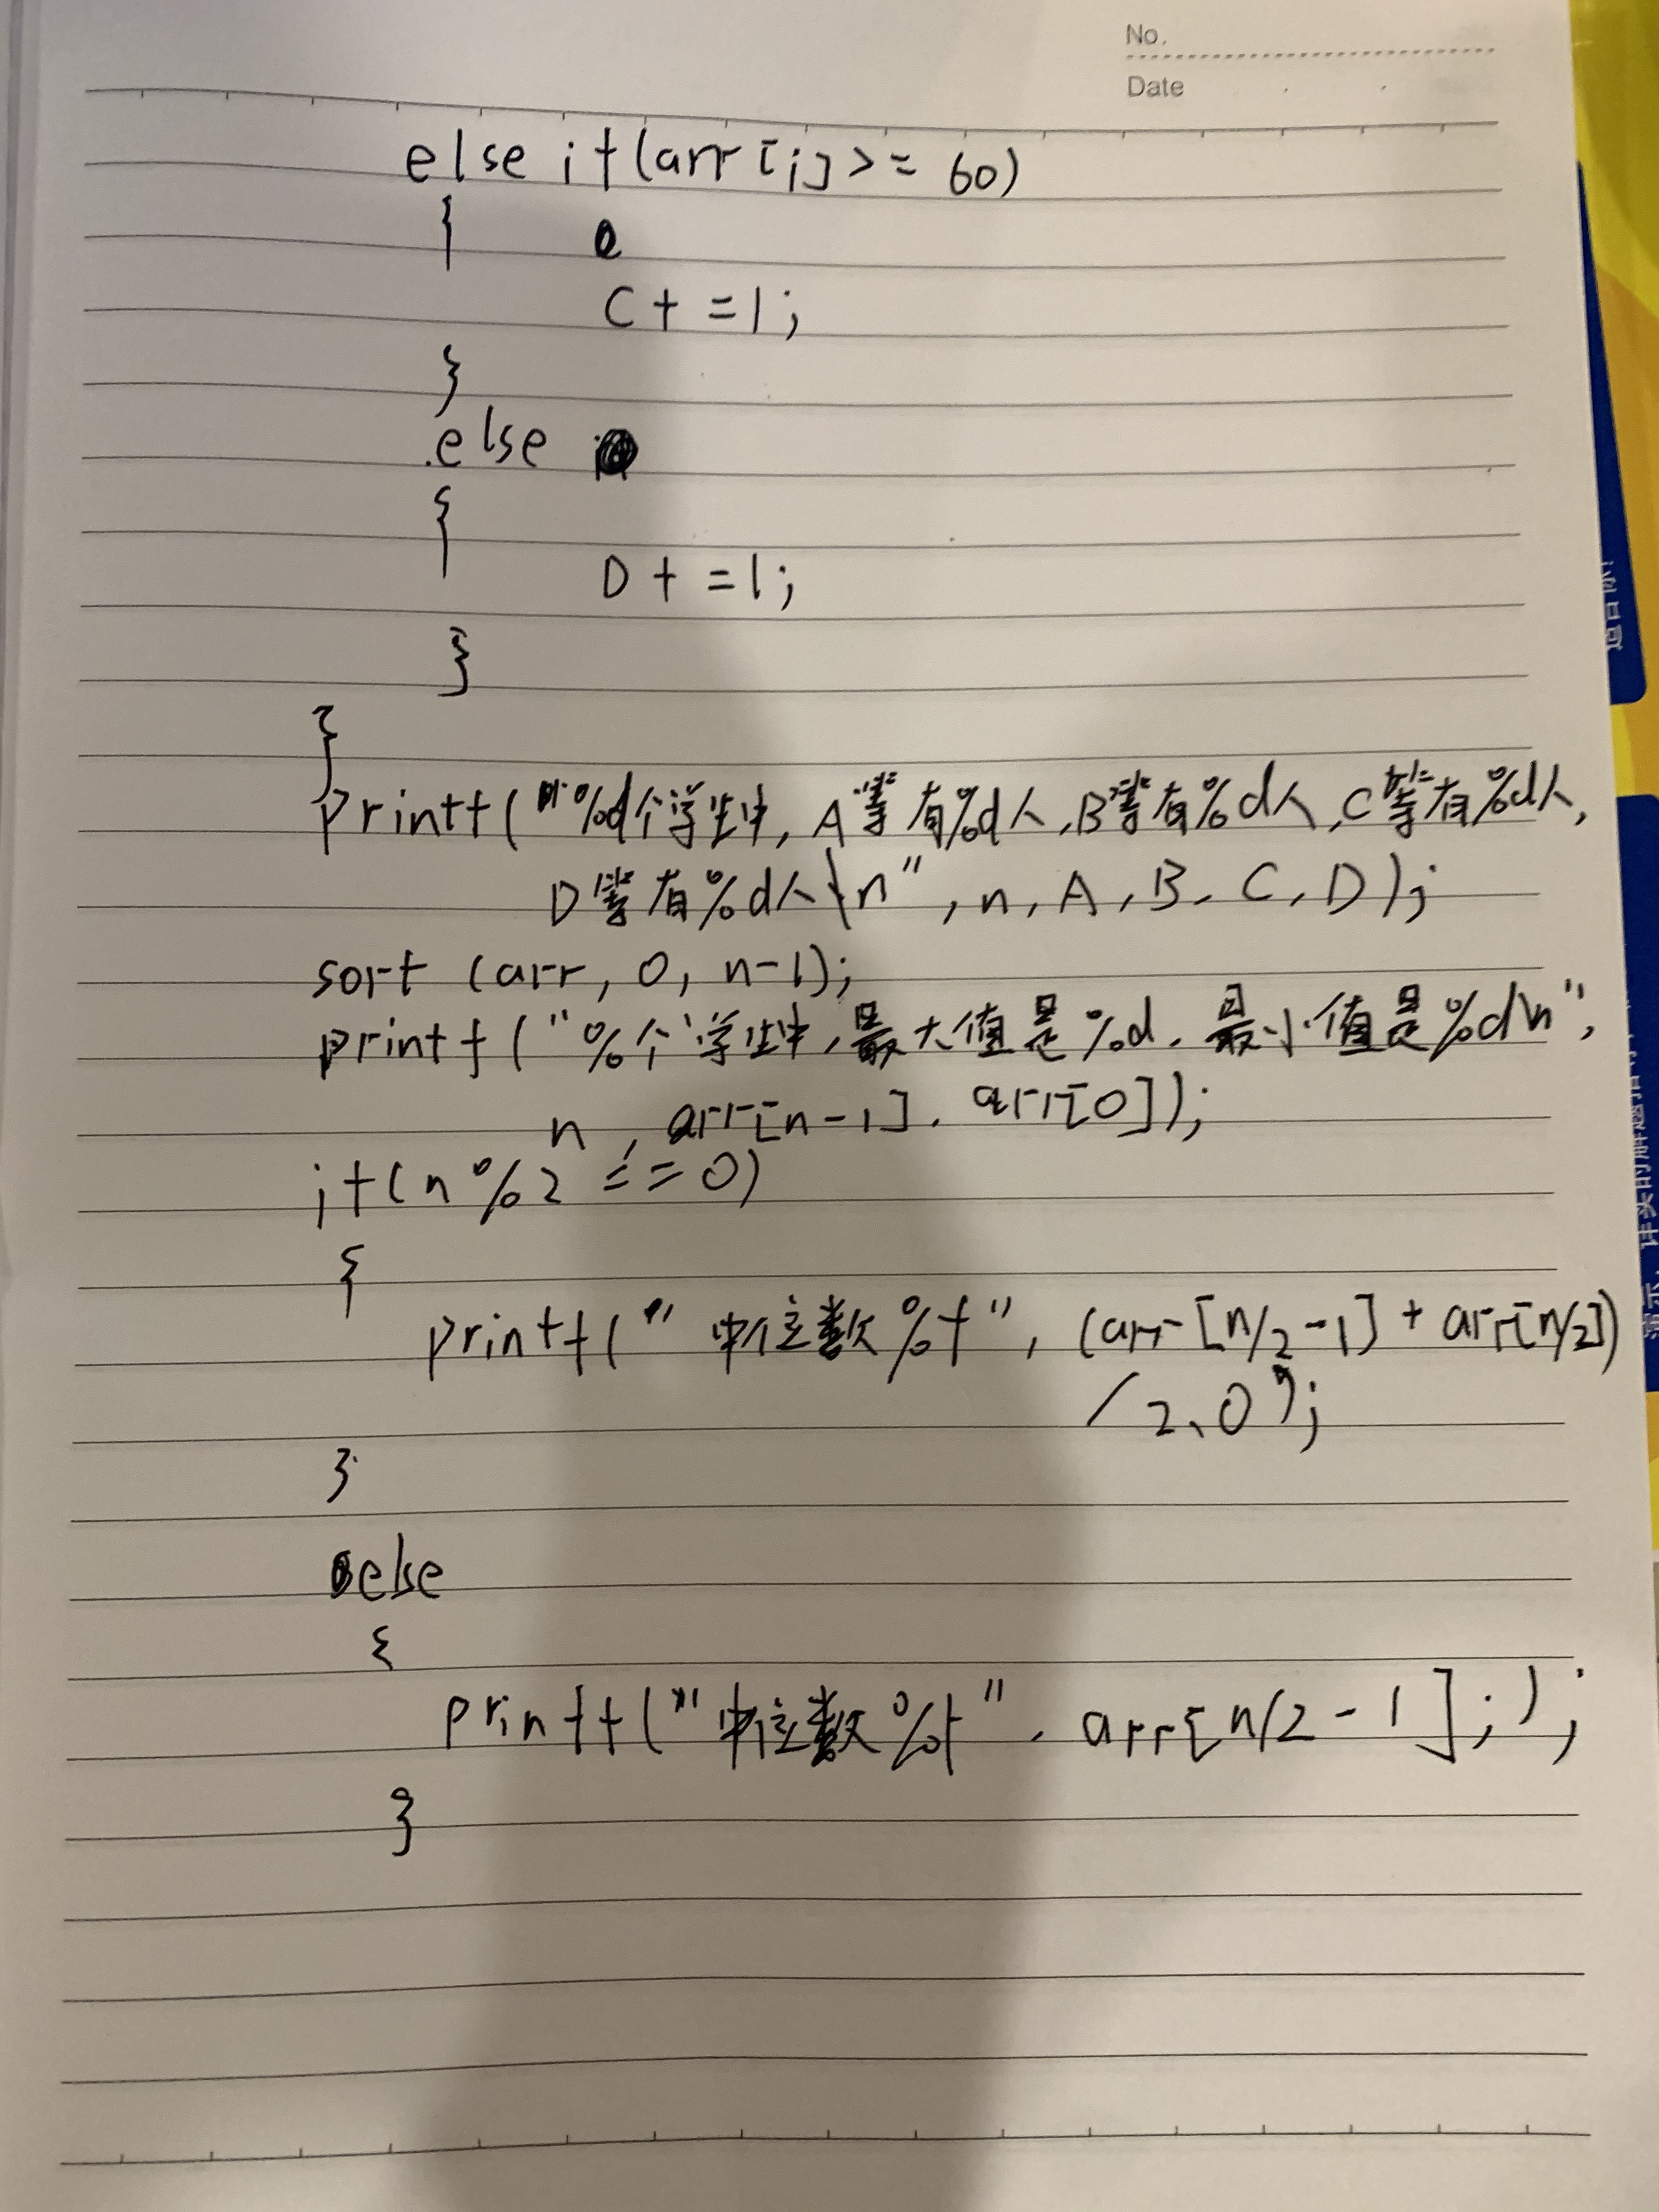 No.
Date
else if(arr[i]>= 60)
{
C+ =1;
}
else
{
D+ =1;
}
}
printf("%d个学生中, A等有%d人,B等有%d人,C等有%d人,
D等有%d人\n", n, A, B, C, D);
sort (arr, 0, n-1);
printf("%个学生中,最大值是%d,最小值是%d\n",
n, arr[n-1], arr[0]);
if(n%2 == 0)
{
printf("中位数%f", (arr[n/2-1] + arr[n/2])
/2.0);
}
else
{
printf("中位数%f", arr[n/2-1];);
}